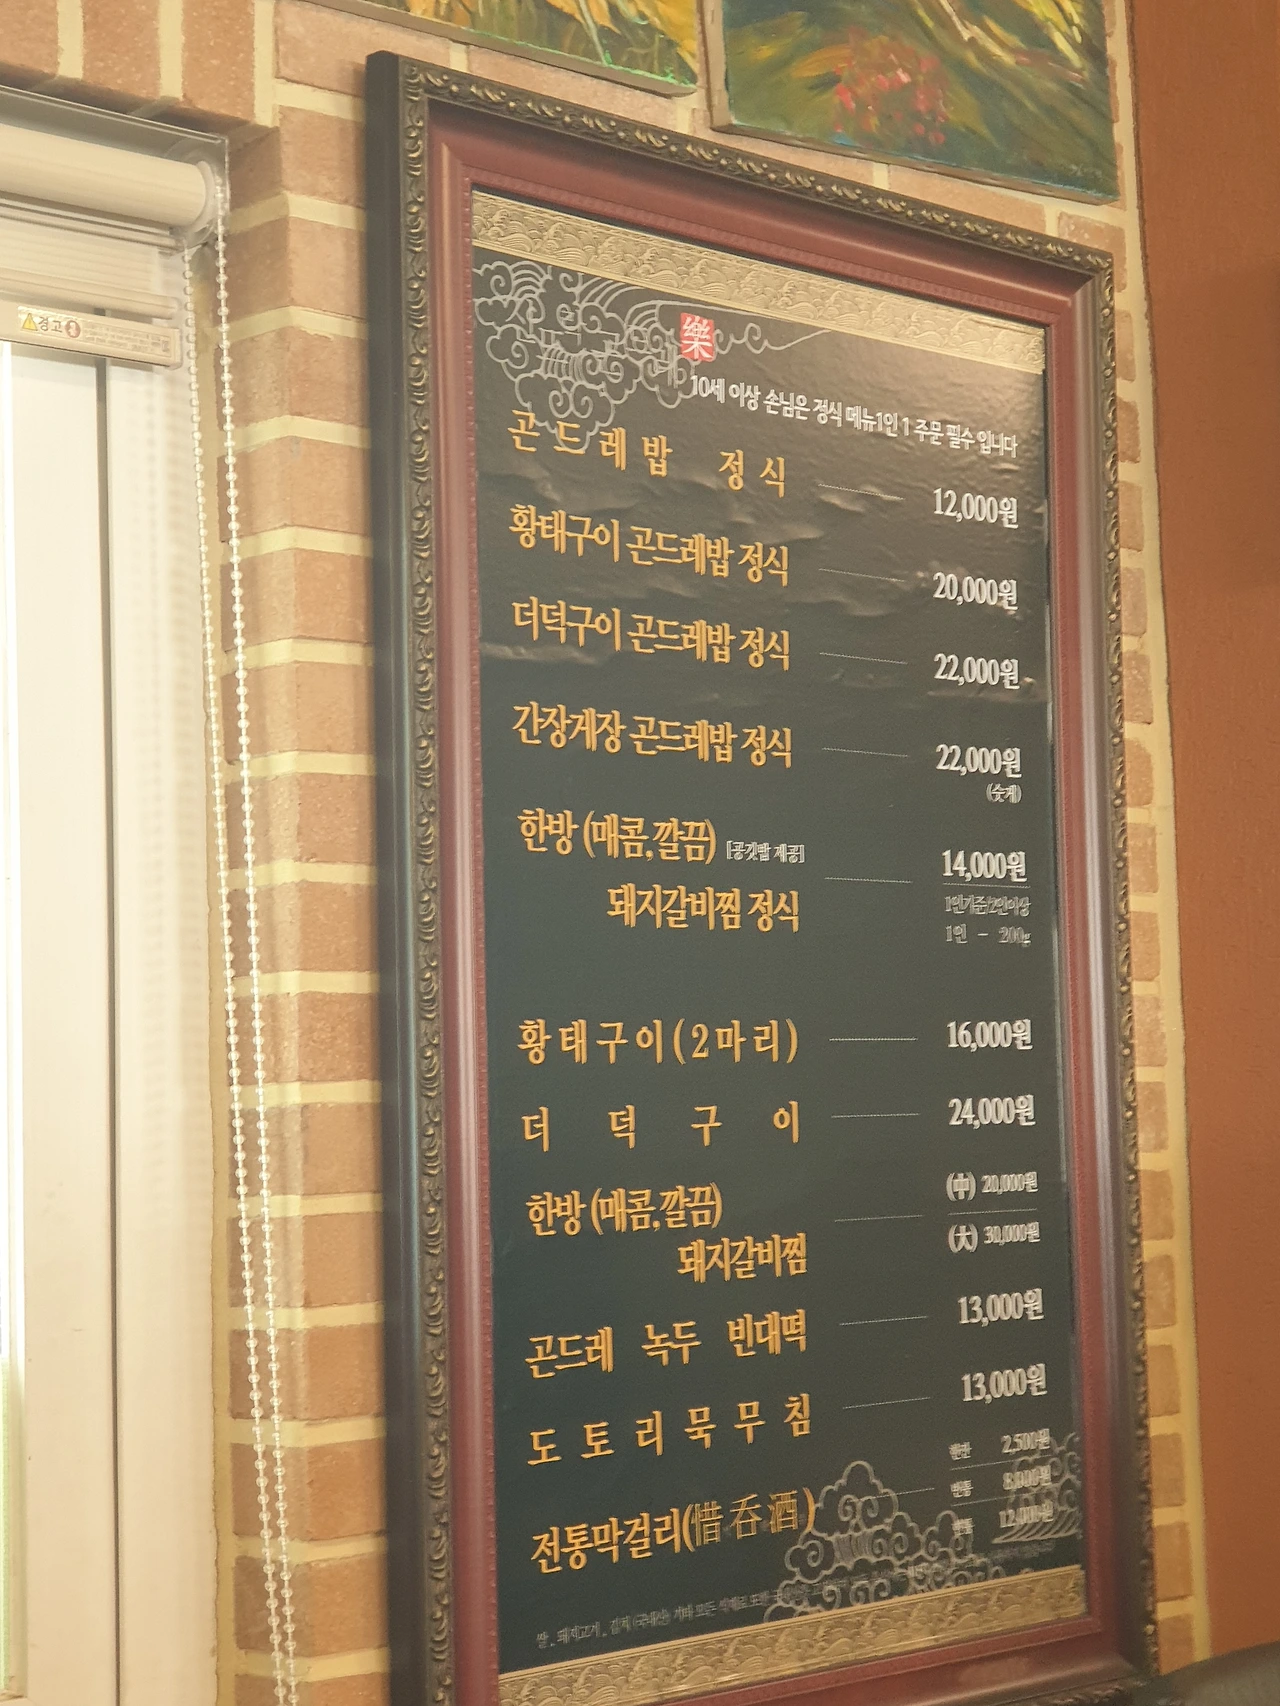 경고
樂
10세 이상 손님은 정식 메뉴1인 1 주문 필수 입니다
곤드레밥 정식 12,000원
황태구이 곤드레밥 정식 20,000원
더덕구이 곤드레밥 정식 22,000원
간장게장 곤드레밥 정식 22,000원
(숫게)
한방 (매콤,깔끔) [공깃밥 제공] 14,000원
돼지갈비찜 정식 1인기준/2인이상
1인 - 200g
황태구이(2마리) 16,000원
더덕구이 24,000원
한방 (매콤,깔끔) (中) 20,000원
돼지갈비찜 (大) 30,000원
곤드레 녹두 빈대떡 13,000원
도토리묵무침 13,000원
한잔 2,500원
전통막걸리(惜呑酒) 반통 8,000원
12,000원
쌀, 돼지고기, 김치 (국내산)